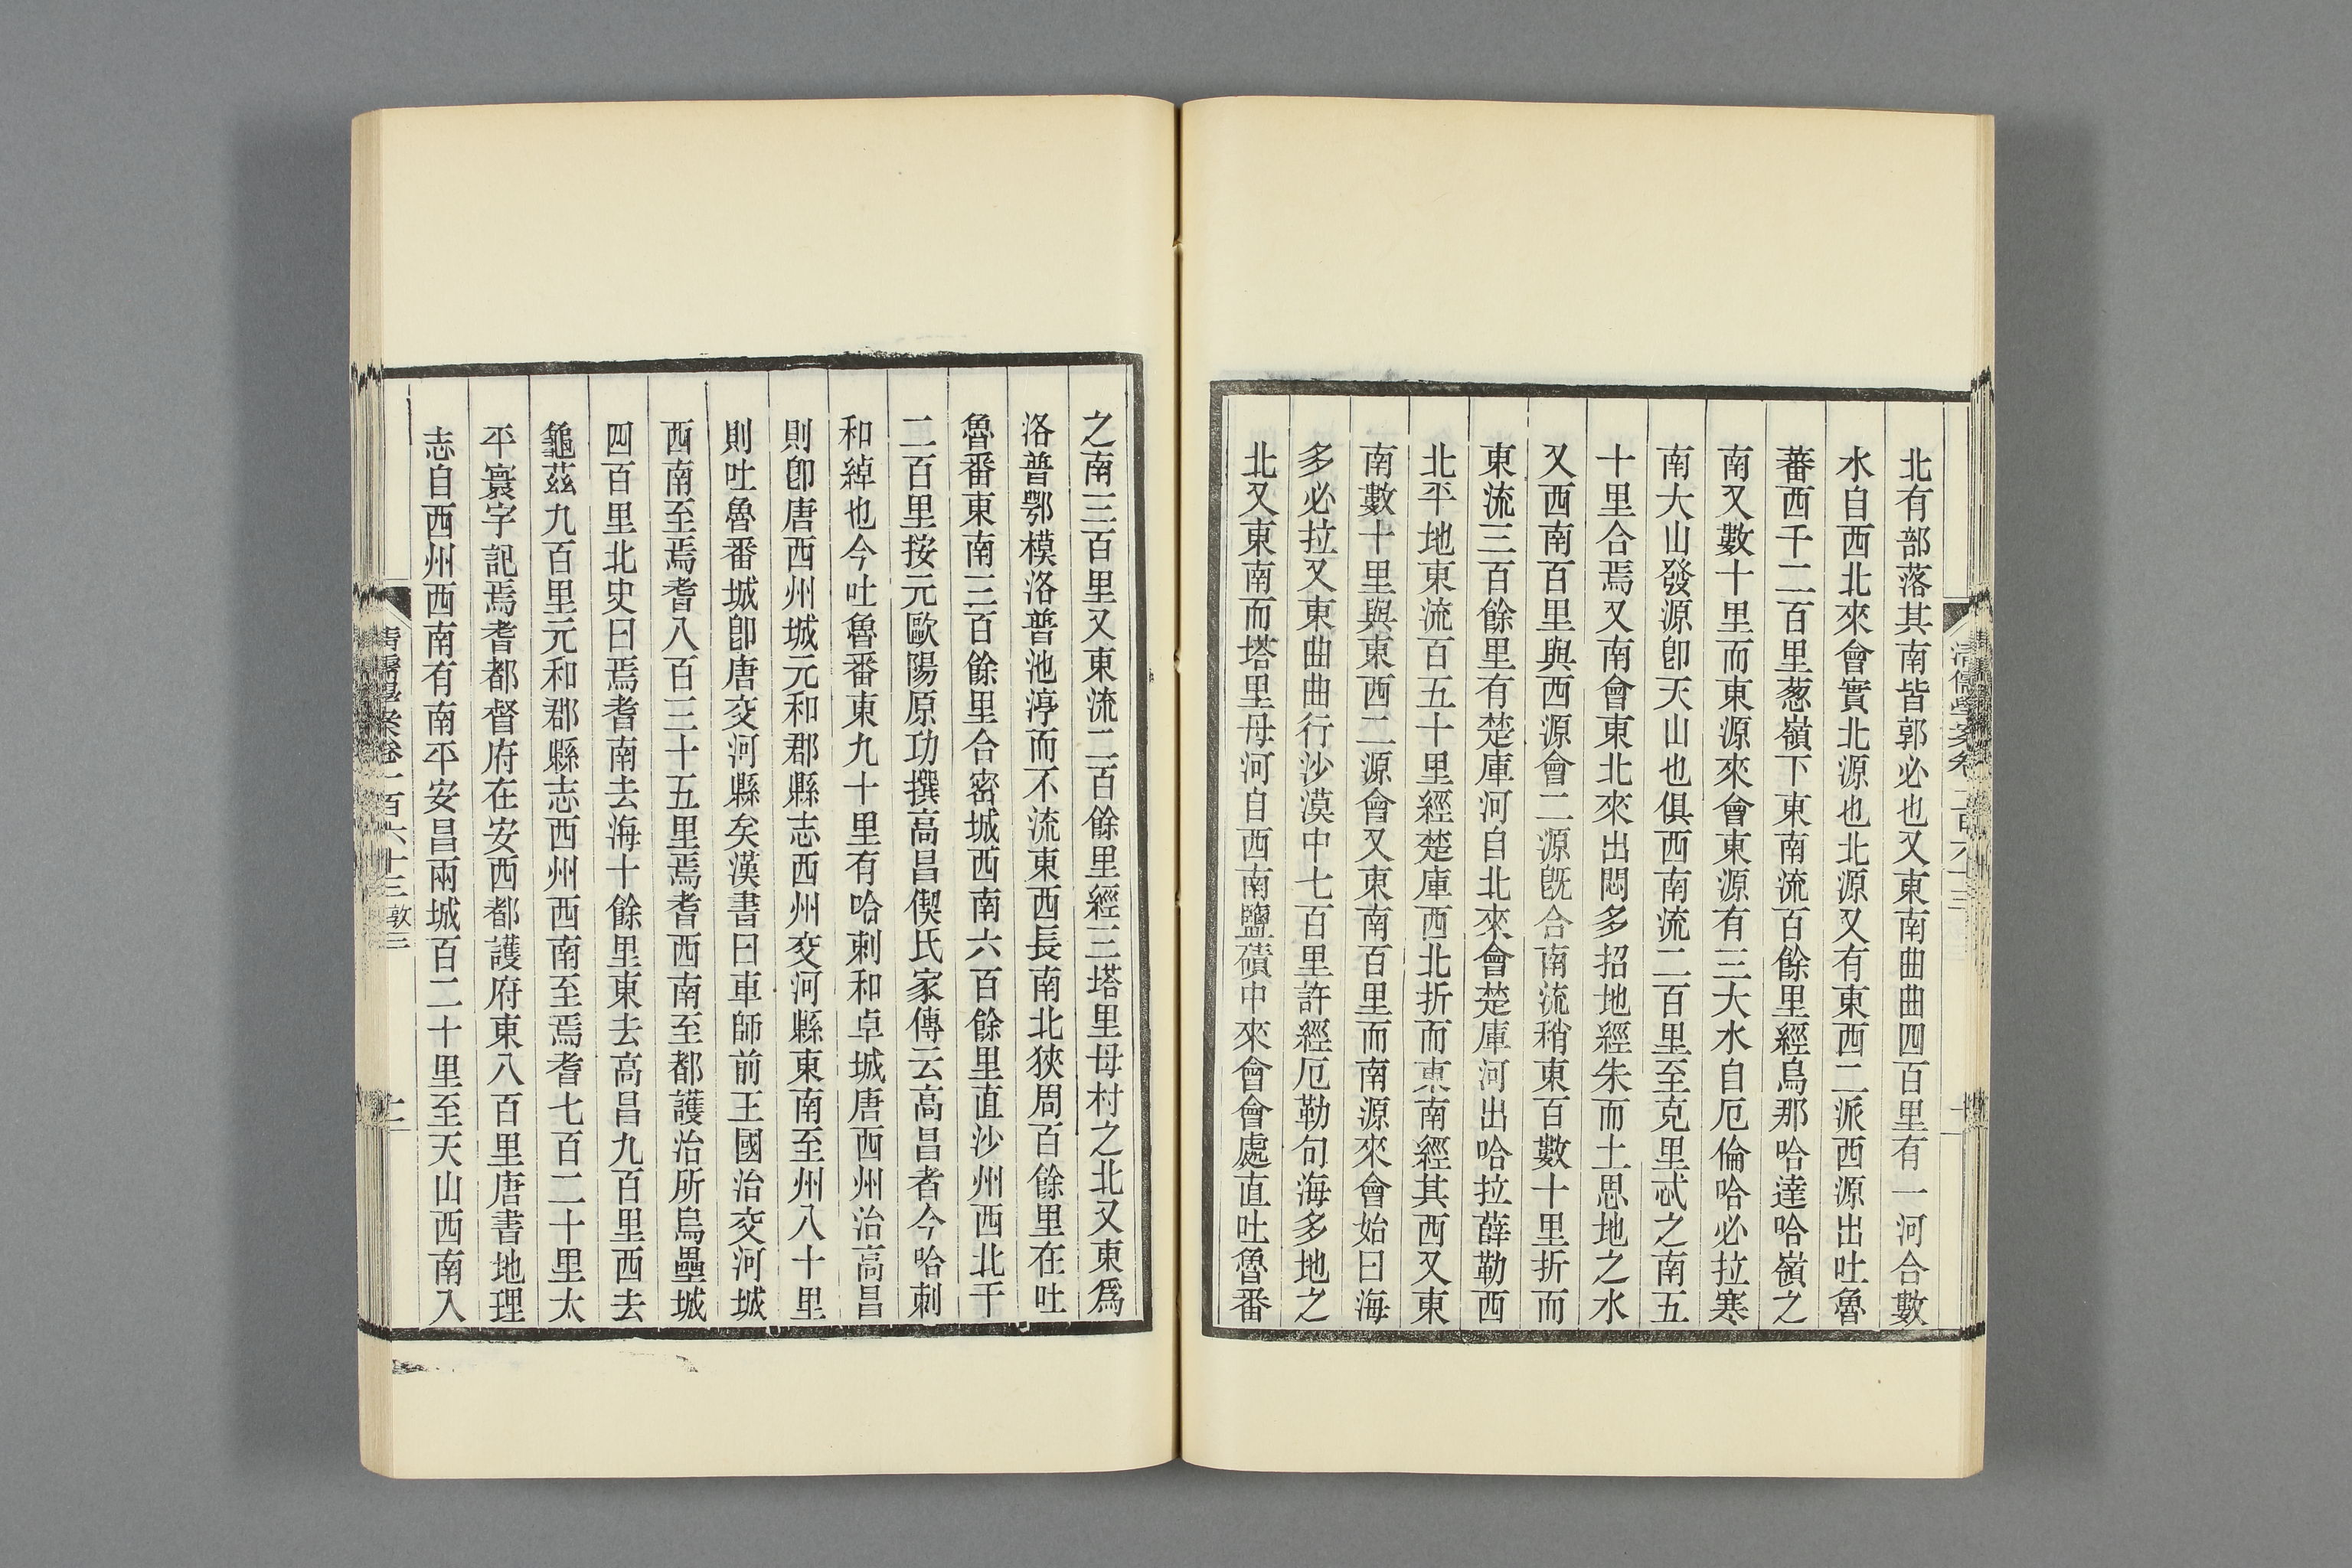 北有部落其南皆郭必也又東南曲曲四百里有一河合數
水自西北來會實北源也北源又有東西二派西源出吐魯
蕃西千二百里葱嶺下東南流百餘里經烏那哈達哈嶺之
南又數十里而東源來會東源有三大水自厄倫哈必拉寒
南大山發源卽天山也俱西南流二百里至克里忒之南五
十里合焉又南會東北來出悶多招地經朱而土思地之水
又西南百里與西源會二源旣合南流稍東百數十里折而
東流三百餘里有楚庫河自北來會楚庫河出哈拉薛勒西
北平地東流百五十里經楚庫西北折而東南經其西又東
南數十里與東西二源會又東南百里而南源來會始曰海
多必拉又東曲曲行沙漠中七百里許經厄勒句海多地之
北又東南而塔里母河自西南鹽磧中來會會處直吐魯番
之南三百里又東流二百餘里經三塔里母村之北又東爲
洛普鄂模洛普池渟而不流東西長南北狹周百餘里在吐
魯番東南三百餘里合密城西南六百餘里直沙州西北千
二百里按元歐陽原功撰高昌偰氏家傳云高昌者今哈剌
和綽也今吐魯番東九十里有哈剌和卓城唐西州治高昌
則卽唐西州城元和郡縣志西州交河縣東南至州八十里
則吐魯番城卽唐交河縣矣漢書曰車師前王國治交河城
西南至焉耆八百三十五里焉耆西南至都護治所烏壘城
四百里北史曰焉耆南去海十餘里東去高昌九百里西去
龜茲九百里元和郡縣志西州西南至焉耆七百二十里太
平寰宇記焉耆都督府在安西都護府東八百里唐書地理
志自西州西南有南平安昌兩城百二十里至天山西南入
清儒學案卷一百六十三 敦三